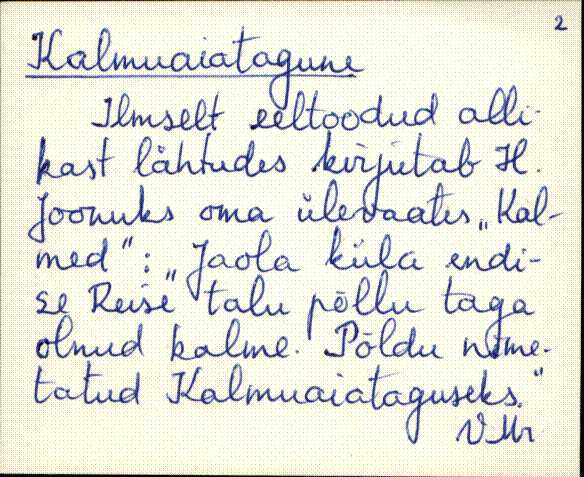 2
Kalmuaiatagune
Ilmselt eeltoodud alli-
kast lähtudes kirjutab H.
Joonuks oma ülevaates „Kal-
med": „Jaola küla endi-
se Reise talu põllu taga
olnud kalme. Põldu nime-
tatud Kalmuaiataguseks."
VMr